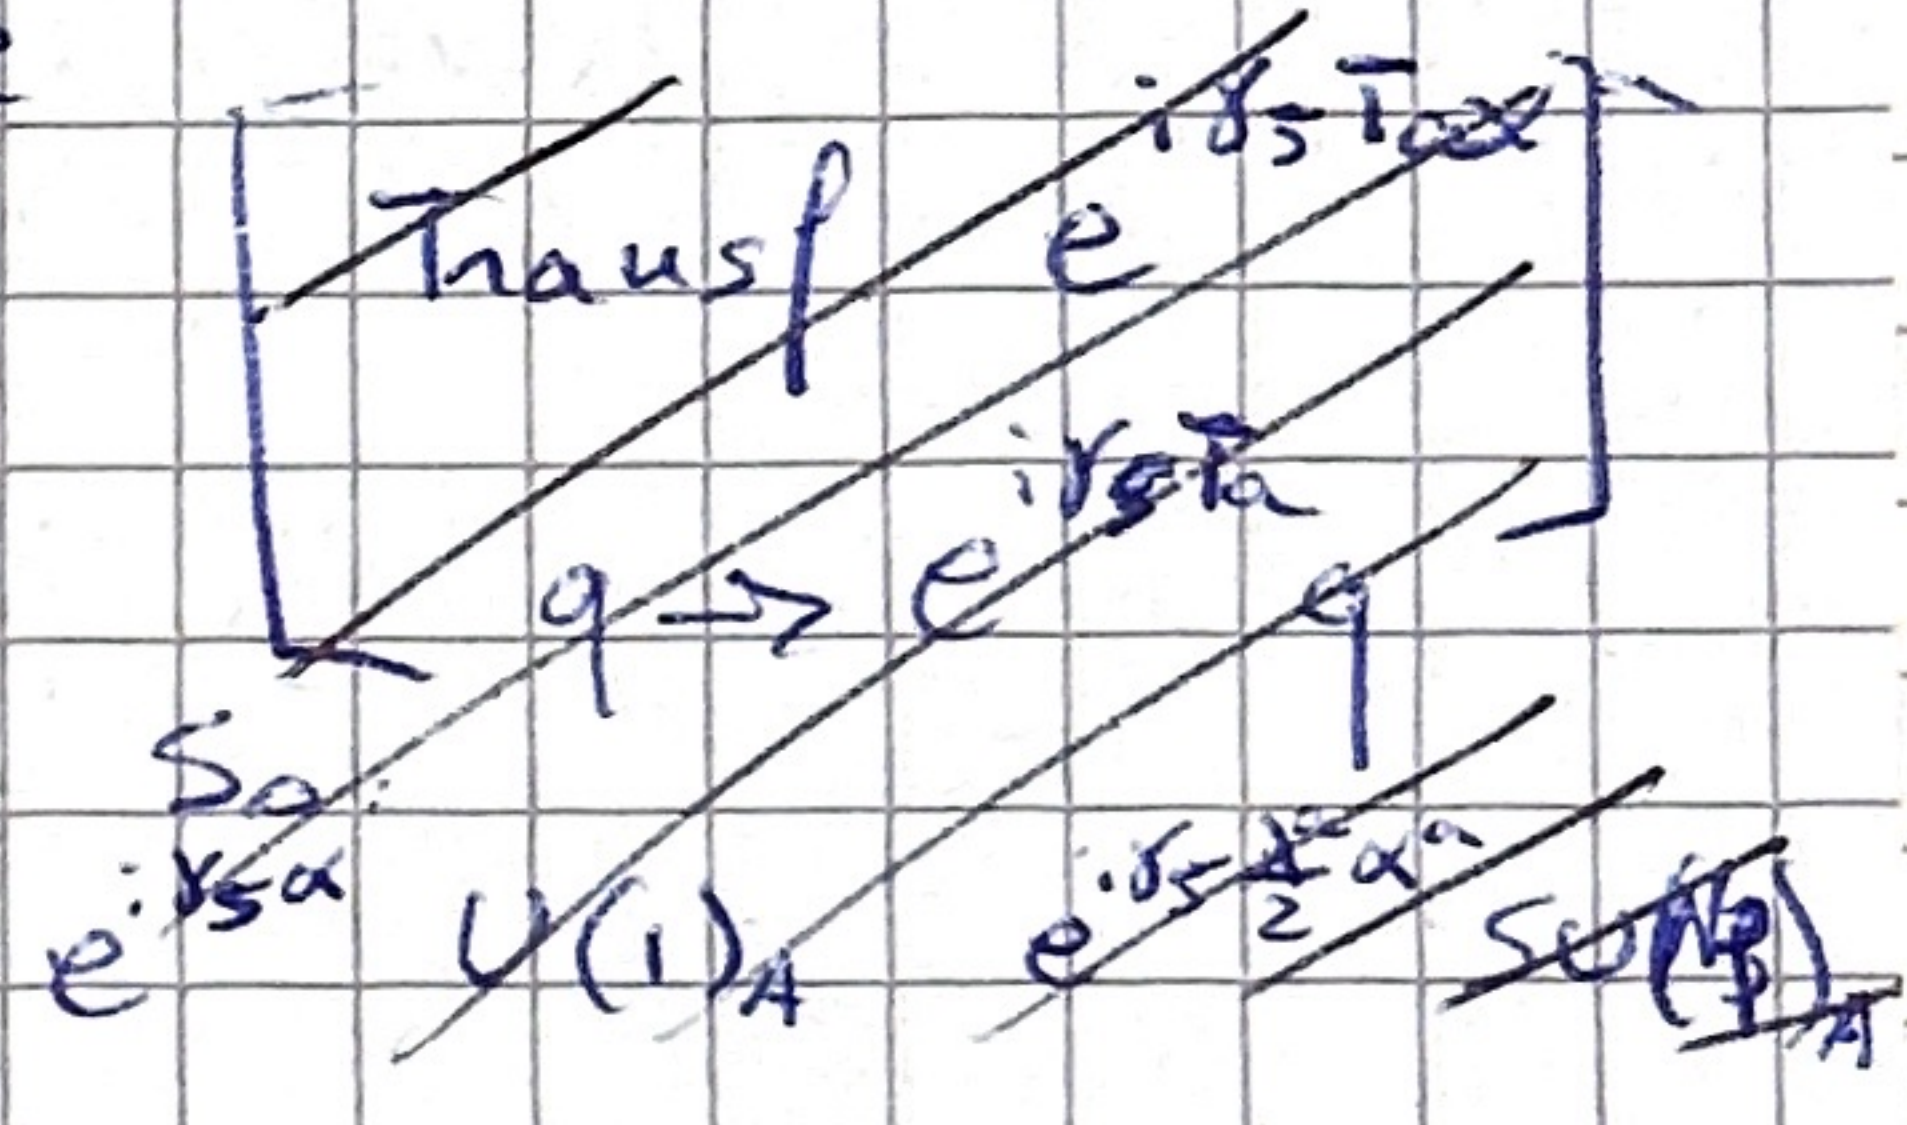 Transf e^{iγ₅T_a α}
q → e^{iγ₅T_a} q
So:
e^{iγ₅α} U(1)_A e^{iγ₅ λ^a/2 α^a} SU(N_f)_A